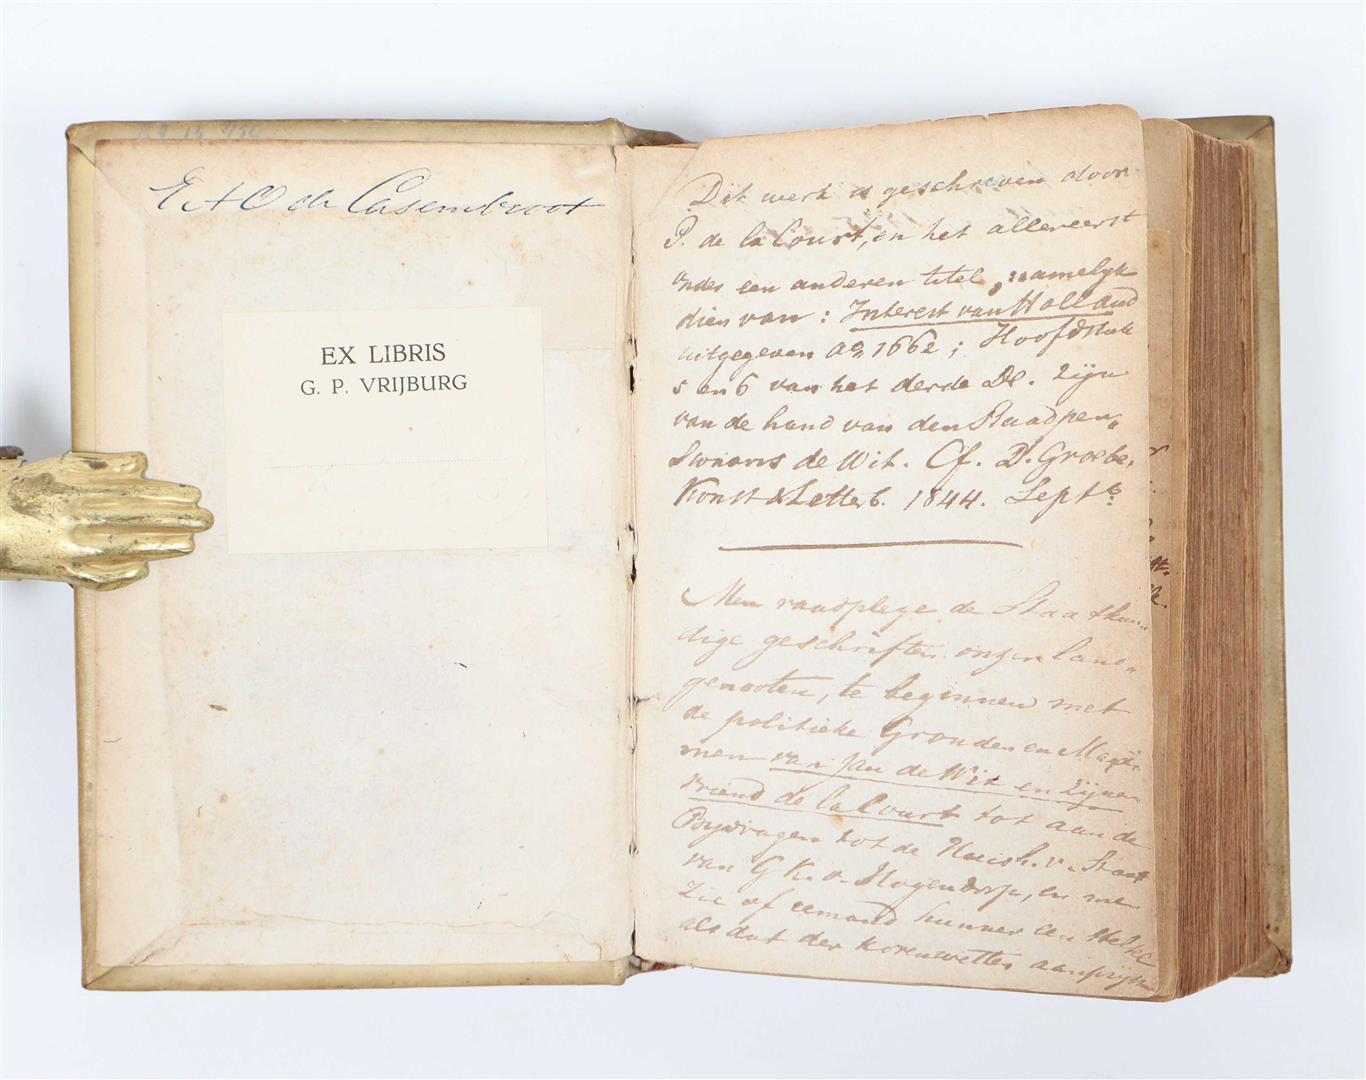 E A O de Casembroot
EX LIBRIS
G. P. VRIJBURG
Dit werk is geschreven door
P. de la Court, en het allereerst
onder een anderen titel, namelyk
dien van: Interest van Holland
uitgegeven ao 1662; Hoofdstuk
5 en 6 van het derde Dl. zijn
van de hand van den Raadpen„
sionaris de Wit. Cf. D. Groebe,
Konst & Letterb. 1844. Septb.
Men raadplege de Staatkun„
dige geschriften onzer Land„
genooten, te beginnen met
de politieke Gronden en Maxi
men van Jan de Wit en zijnen
vriend de la Court tot aan de
Bydragen tot de Huish. v. Staat
van G K. v. Hogendorp, en men
zie of iemand hunner een stelsel
als dat der korenwetten aanprijst